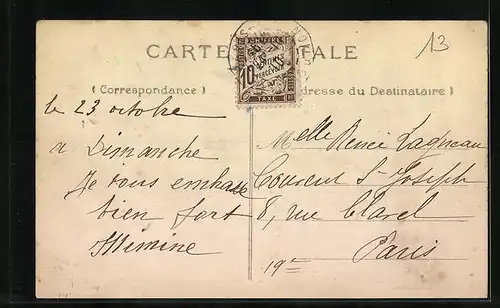 CARTE POSTALE
13
( Correspondance )
Adresse du Destinataire )
CHIFFRE
10
CENTIMES
A PERCEVOIR
TAXE
le 23 octobre
a Dimanche
Je vous embrasse
bien fort
Melle Renée Lagneau
Couvent St Joseph
8, rue Clavel
Paris
19e